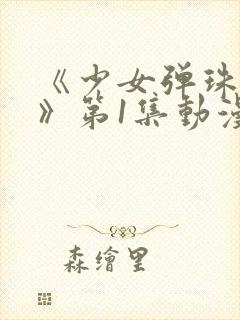 《少女弹珠
》第1集動漫
森繪里